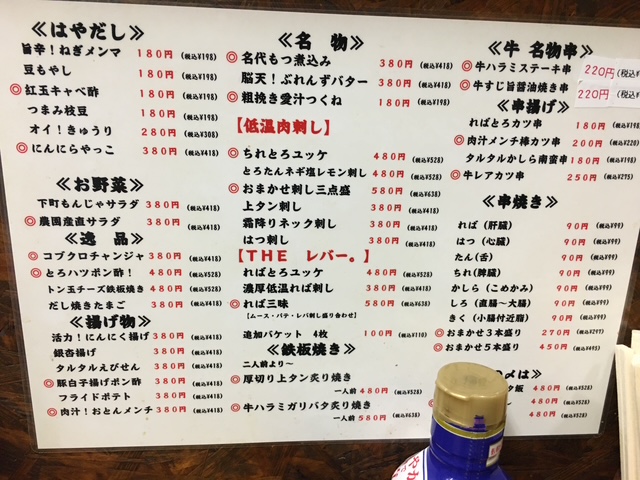 ≪はやだし≫
旨辛！ねぎメンマ 180円 (税込¥198)
豆もやし 180円 (税込¥198)
◎紅玉キャベ酢 180円 (税込¥198)
つまみ枝豆 180円 (税込¥198)
オイ！きゅうり 280円 (税込¥308)
◎にんにらやっこ 380円 (税込¥418)
≪お野菜≫
下町もんじゃサラダ 380円 (税込¥418)
◎農園直送サラダ 380円 (税込¥418)
≪逸品≫
◎コブクロチャンジャ 380円 (税込¥418)
◎とろハツポン酢！ 480円 (税込¥528)
トン玉チーズ鉄板焼き 480円 (税込¥528)
だし焼きたまご 380円 (税込¥418)
≪揚げ物≫
活力！にんにく揚げ 380円 (税込¥418)
銀杏揚げ 380円 (税込¥418)
タルタルえびせん 380円 (税込¥418)
◎豚白子揚げポン酢 380円 (税込¥418)
フライドポテト 380円 (税込¥418)
◎肉汁！おとんメンチ 380円 (税込¥418)
≪名物≫
◎名代もつ煮込み 380円 (税込¥418)
脳天！ぶれんずバター 380円 (税込¥418)
◎粗挽き愛汁つくね 180円 (税込¥198)
【低温肉刺し】
◎ちれとろユッケ 480円 (税込¥528)
とろたんネギ塩レモン刺し 480円 (税込¥528)
◎おまかせ刺し三点盛 580円 (税込¥638)
上タン刺し 380円 (税込¥418)
霜降りネック刺し 380円 (税込¥418)
はつ刺し 380円 (税込¥418)
【THE レバー。】
ればとろユッケ 480円 (税込¥528)
濃厚低温れば刺し 380円 (税込¥418)
◎れば三昧 580円 (税込¥638)
【ムース・パテ・レバ刺し盛り合わせ】
追加バケット 4枚 100円 (税込¥110)
≪鉄板焼き≫
二人前より〜
◎厚切り上タン炙り焼き
一人前 480円 (税込¥528)
◎牛ハラミガリバタ炙り焼き
一人前 580円 (税込¥638)
≪牛 名物串≫
◎牛ハラミステーキ串 220円 (税込¥
◎牛すじ旨醤油焼き串 220円 (税込¥
≪串揚げ≫
ればとろカツ串 180円 (税込¥198)
◎肉汁メンチ棒カツ串 200円 (税込¥220)
タルタルかしら南蛮串 180円 (税込¥198)
◎牛レアカツ串 250円 (税込¥275)
≪串焼き≫
れば (肝臓) 90円 (税込¥99)
はつ (心臓) 90円 (税込¥99)
たん (舌) 90円 (税込¥99)
ちれ (脾臓) 90円 (税込¥99)
かしら (こめかみ) 90円 (税込¥99)
しろ (直腸〜大腸) 90円 (税込¥99)
きく (小腸付近脂) 90円 (税込¥99)
◎おまかせ3本盛り 270円 (税込¥297)
◎おまかせ5本盛り 450円 (税込¥495)
〆は≫
飯 480円 (税込¥528)
480円 (税込¥528)
480円 (税込¥528)